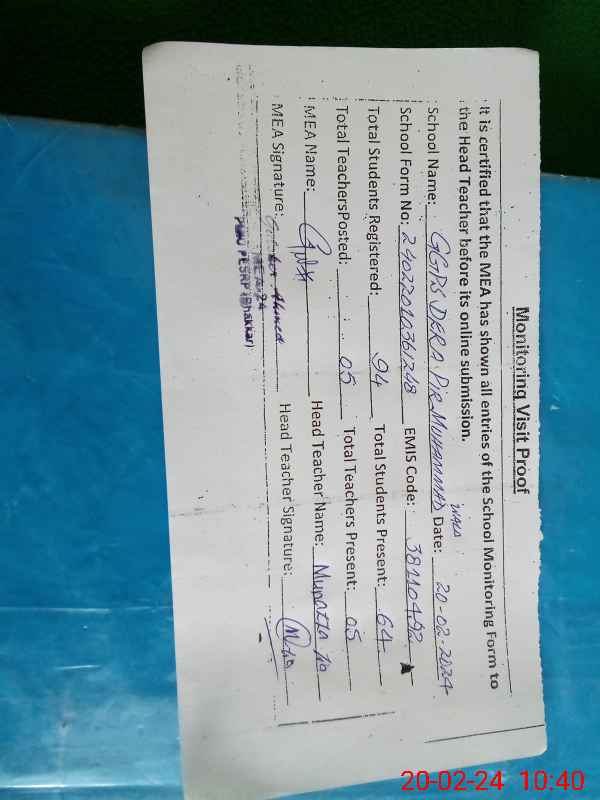 Monitoring Visit Proof
It is certified that the MEA has shown all entries of the School Monitoring Form to
the Head Teacher before its online submission.
School Name: GGPS DERA PIR MUHAMMAD WALA Date: 20-02-2024
School Form No: EMIS Code: 38110492
Total Students Registered: 94 Total Students Present: 64
Total TeachersPosted: 05 Total Teachers Present: 05
MEA Name: Head Teacher Name:
MEA Signature: Ahmed Head Teacher Signature:
PMIU PESRP (Bhakkar)
20-02-24 10:40